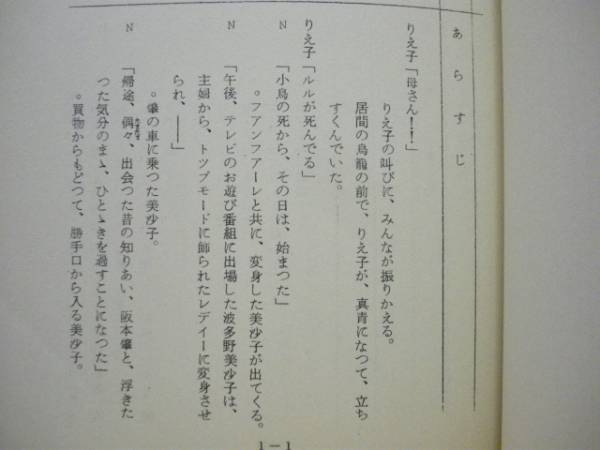 あらすじ
りえ子「母さん!!」
りえ子の叫びに、みんなが振りかえる。
居間の鳥籠の前で、りえ子が、真青になつて、立ち
すくんでいた。
りえ子「ルルが死んでる」
N「小鳥の死から、その日は、始まつた」
。フアンフアーレと共に、変身した美沙子が出てくる。
N「午後、テレビのお遊び番組に出場した波多野美沙子は、
主婦から、トツプモードに飾られたレデイーに変身させ
られ、――」
。肇の車に乗つた美沙子。
N「帰途、偶々、出会つた昔の知りあい、阪本肇と、浮きた
つた気分のまゝ、ひとゝきを過すことになつた」
。買物からもどつて、勝手口から入る美沙子。
1－1